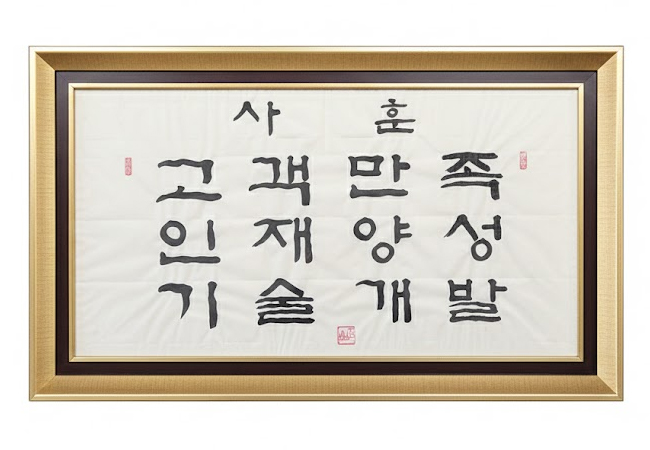 사 훈
고 객 만 족
인 재 양 성
기 술 개 발